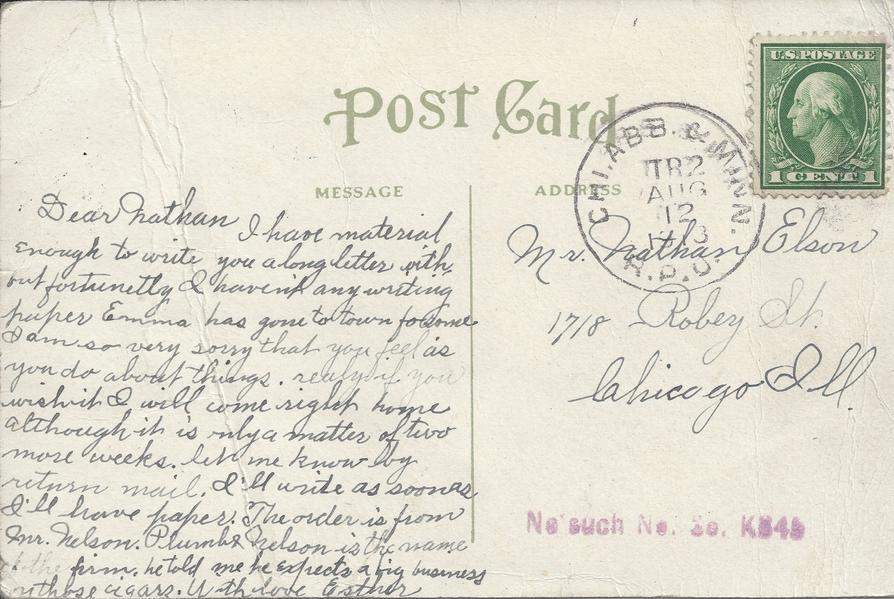 U.S. POSTAGE
1 CENT 1
Post Card
CHI. ABB. & MINN.
TR2
AUG
12
R.P.O.
MESSAGE
ADDRESS
Dear Nathan I have material
enough to write you a long letter with,
but fortunetly I haven't any writing
paper Emma has gone to town for some
I am so very sorry that you feel as
you do about things. realy if you
wish it I will come right home
although it is only a matter of two
more weeks. let me know by
return mail. I'll write as soon as
I'll have paper. The order is from
Mr. Nelson. Plumb & Nelson is the name
of the firm. he told me he expects a big business
on those cigars. With love Esther
Mr. Nathan Elson
1718 Robey St.
Chicago Ill.
No such No. So. K545